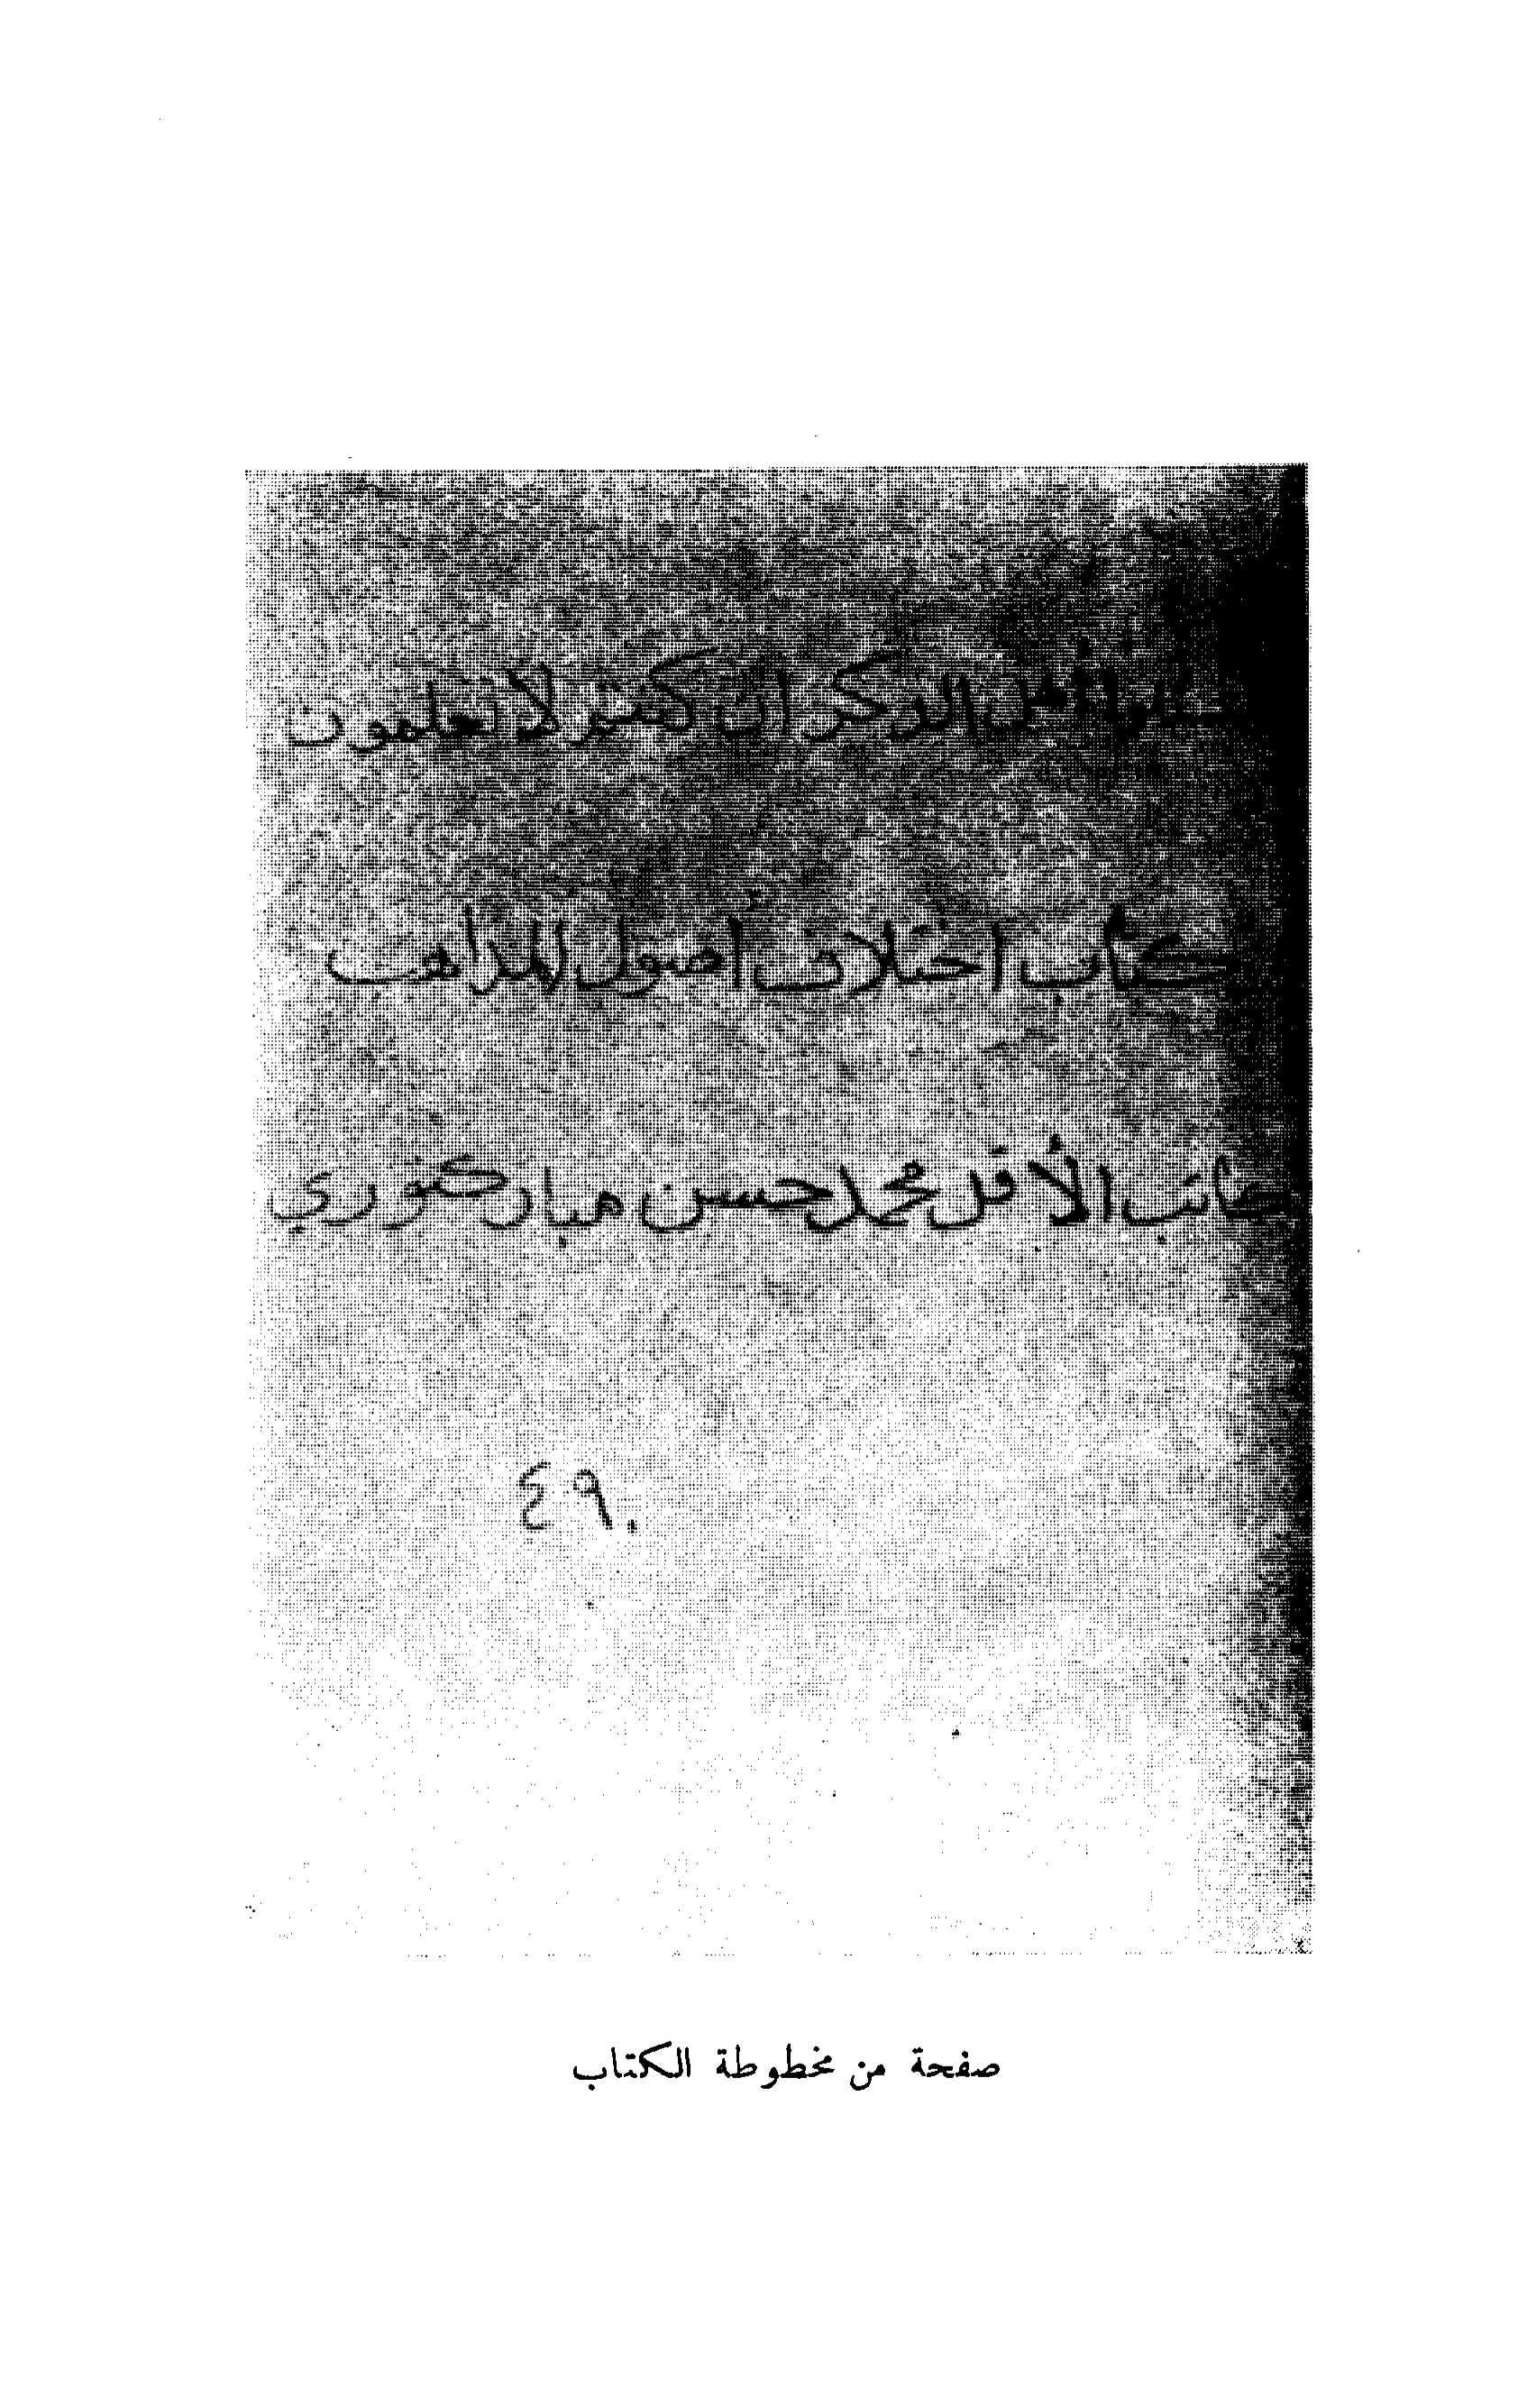 فاسئلوا اهل الذكر ان كنتم لا تعلمون
كتاب اختلاف أصول المذاهب
كاتب الأقل محمد حسن مباركفوري
٤٩٠
صفحة من مخطوطة الكتاب